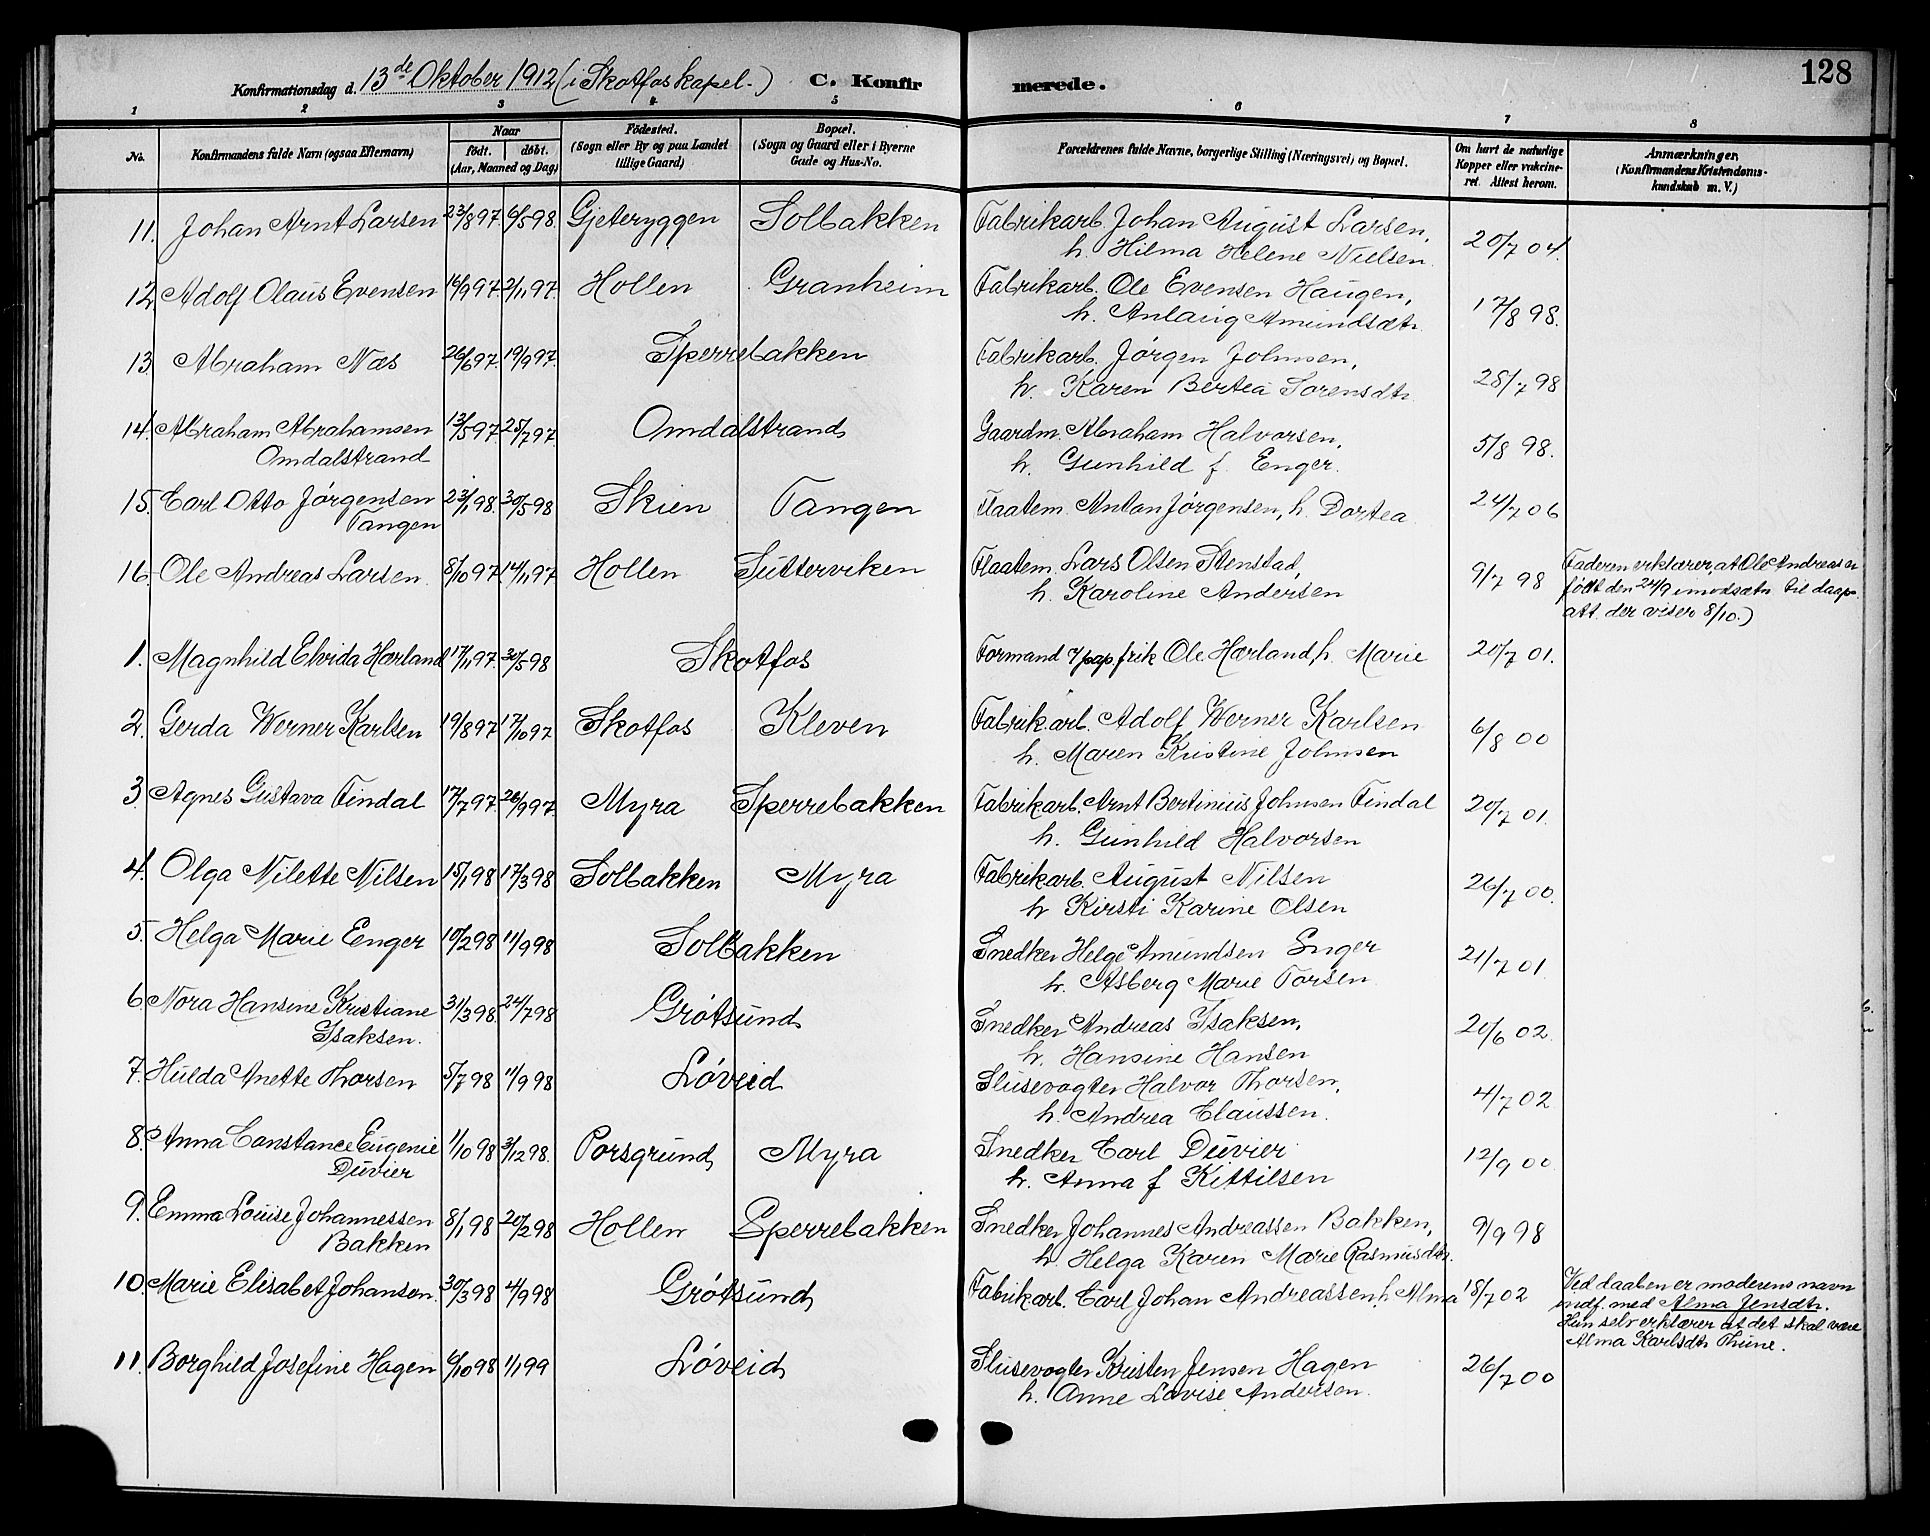 128
Konfirmationsdag d. 13de Oktober 1912 (i Skotfos kapel.) C. Konfirmerede.
1 2 3 4 5 6 7 8
No. Konfirmandens fulde Navn (ogsaa Efternavn) Naar födt. döbt. (Aar, Maaned og Dag) Födested. (Sogn eller By og paa Landet tillige Gaard) Bopæl. (Sogn og Gaard eller i Byerne Gade og Hus-No. Forældrenes fulde Navne, borgerlige Stilling (Næringsvei) og Bopæl. Om havt de naturlige Kopper eller vakcineret. Attest herom. Anmærkninger. (Konfirmandens Kristendomskundskab m. V.)
11. Johan Arnt Larsen 23/8 97. 6/5 98. Gjeteryggen Solbakken Fabrikarb. Johan August Larsen, 20/7 04.
h. Hilma Helene Nielsen.
12. Adolf Olaus Evensen 16/9 97. 2/11 97. Hollen Granheim Fabrikarb. Ole Evensen Haugen, 17/8 98.
h. Anlaug Amundsdtr.
13. Abraham Næs 26/6 97. 19/9 97. Sperrebakken Fabrikarb. Jørgen Johnsen, 28/7 98
h. Karen Bertea Sorensdtr.
14. Abraham Abrahamsen 13/5 97. 25/7 97. Omdalstrand Gaardm. Abraham Halvorsen, 5/8 98.
Omdalstrand h. Gunhild f. Enger.
15. Carl Otto Jørgensen 23/1 98. 30/5 98 Skien Tangen Flaatem. Anton Jørgensen, h. Dortea 24/7 06
Tangen
16. Ole Andreas Larsen. 8/10 97 14/11 97 Hollen Sutterviken Flaatem. Lars Olsen Stenstad, 9/7 98 Faderen erklærer, at Ole Andreas er
h. Karoline Andersen født den 24/9 i modsætn. til daaps-
att. der viser 8/10.)
1. Magnhild Elvida Hærland 17/11 97. 30/5 98 Skotfos Formand v/pap.frik Ole Hærland, h. Marie 20/7 01.
2. Gerda Werner Karlsen 19/8 97 17/10 97 Skotfos Kleven Fabrik.arb. Adolf Werner Karlsen 6/8 00
h. Maren Kristine Johnsen
3. Agnes Gustava Findal 17/7 97. 26/9 97. Myra Sperrebakken Fabrikarb. Arnt Bertinius Johnsen Findal 20/7 01.
h. Gunhild Halvorsen
4. Olga Nilette Nilsen 15/1 98 17/3 98 Solbakken Myra Fabrikarb. August Nilsen 26/7 00.
h. Kirsti Karine Olsen
5. Helga Marie Eenger 10/2 98 11/9 98 Solbakken Snedker Helge Amundsen Enger 21/7 01
h. Asberg Marie Torsen
6. Nora Hansine Kristiane 31/3 98. 24/7 98 Grøtsund Snedker Andreas Isaksen, 20/6 02
Isaksen. h. Hansine Hansen
7. Hulda Anette Thorsen 5/7 98 11/9 98 Løveid Slusevogter Halvor Thorsen, 4/7 02
h. Andrea Claussen.
8. Anna Constance Eugenie 1/10 98 3/12 98. Porsgrund Myra Snedker Carl Duvier 12/9 00
Duvier h. Anna f Kittilsen
9. Emma Louise Johannessen 8/1 98 20/2 98 Hollen Sperrebakken Snedker Johannes Andreassen Bakken, 9/9 98
Bakken h. Helga Karen Marie Rasmusdtr.
10. Marie Elisabet Johansen. 30/3 98 4/9 98 Grøtsund Fabrikarb. Carl Johan Andreassen, h. Alma 18/7 02 Ved daaben er moderens navn
indf. med Alma Jensdtr.
Hun selv erklærer at det skal være
Alma Karlsdtr. Thune.
11. Borghild Josefine Hagen 6/10 98 1/1 99 Løveid Slusevogter Kristen Jensen Hagen 26/7 00
h. Anne Lovise Andersen.